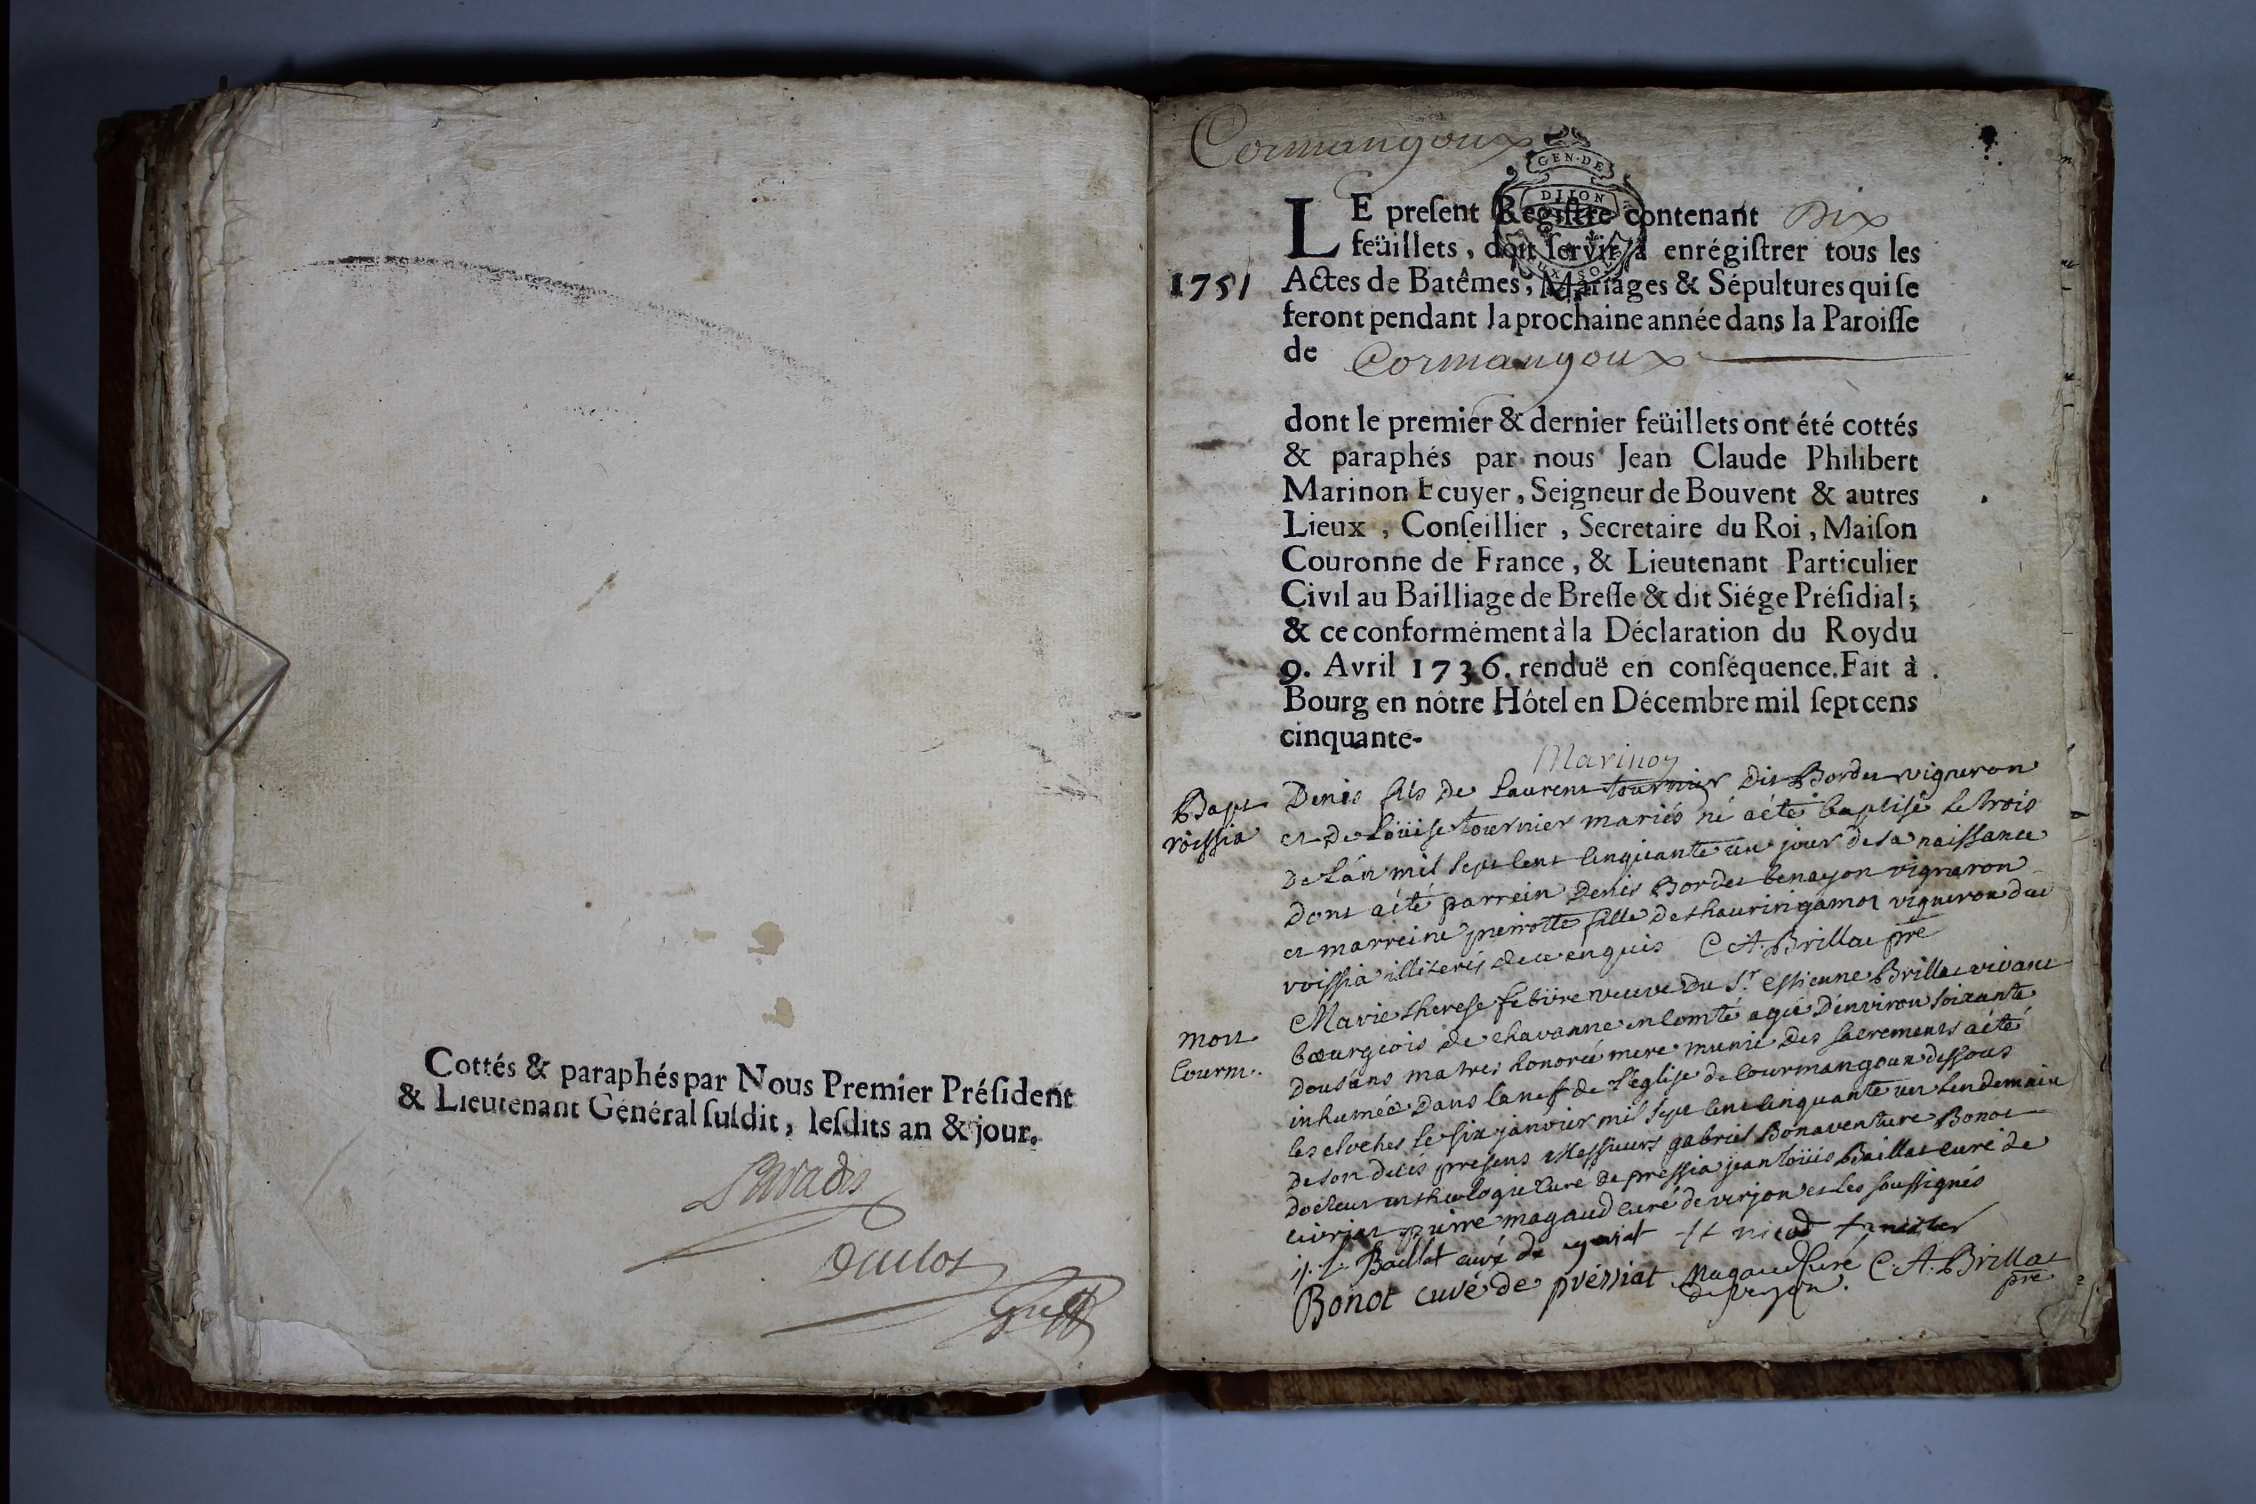 Cottés & paraphés par Nous Premier Président
& Lieutenant Général ſuſdit, leſdits an & jour.
Duclos
Cormangoux
GEN·DE
DIJON
LE preſent Regiſtre contenant Dix
feüillets, doit ſervir à enrégiſtrer tous les
1751
Actes de Batêmes, Mariages & Sépultures qui ſe
feront pendant la prochaine année dans la Paroiſſe
de Cormangoux
dont le premier & dernier feüillets ont été cottés
& paraphés par nous Jean Claude Philibert
Marinon Ecuyer, Seigneur de Bouvent & autres
Lieux, Conſeillier, Secretaire du Roi, Maiſon
Couronne de France, & Lieutenant Particulier
Civil au Bailliage de Breſſe & dit Siége Préſidial;
& ce conformément à la Déclaration du Roy du
9. Avril 1736. renduë en conſéquence. Fait à
Bourg en nôtre Hôtel en Décembre mil ſept cens
cinquante-
Marinon
Bapt
roissia
Denis fils de Laurent tournier dit Bordet vigneron
et de Loüise tournier mariés né a été baptisé le trois
de l'an mil sept cent cinquante un jour de sa naissance
dont a été parrein Denis Bordet vigneron
et marreine pierrotte fille de vigneron du
roissia illiterés de ce enquis C. A. Brillat pre
Mort
Courm.
Marie therese febvre veuve du Sr. estienne Brillat vivant
bourgeois de chavanne en Comté agée d'environ soixante
dous ans ma tres honorée mere munie des sacrements a été
inhumée dans la nef de l'église de Courmangoux dessous
les cloches le six janvier mil sept cent cinquante un lendemain
de son decés presens Messieurs gabriel Bonaventure Bonot
docteur en theologie curé de pressia jean Loüis Baillat curé de
pierre magaud curé de verjon et les soussignés
J. L. Baillat curé de
Bonot curé de préssiat Magaud Curé C. A. Brillat
de verjon. pre